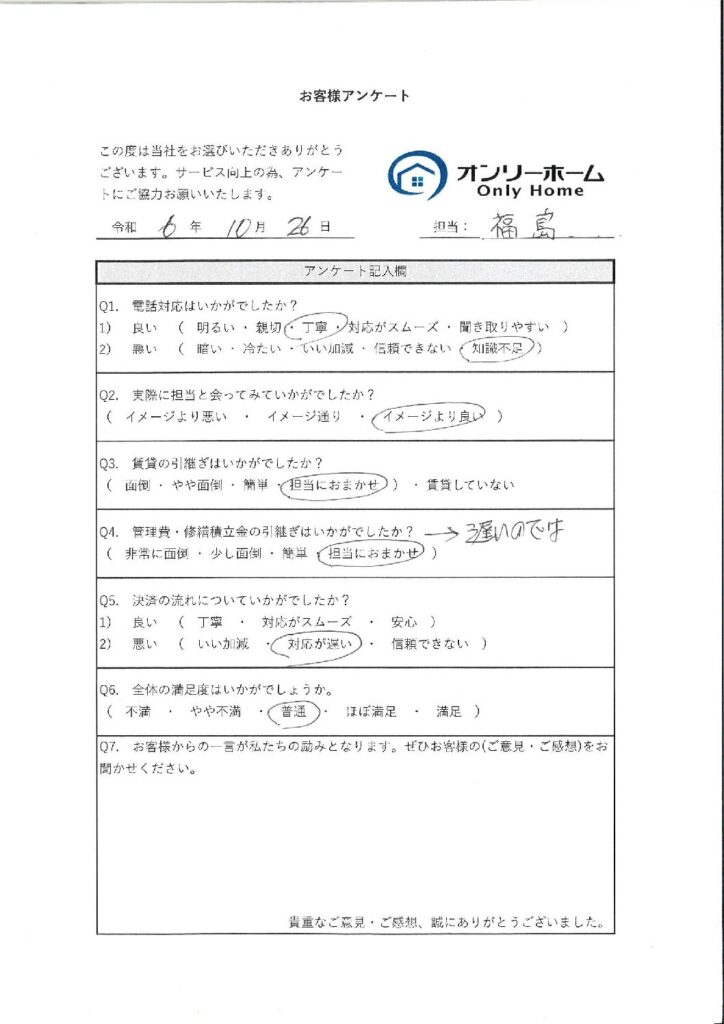 お客様アンケート
この度は当社をお選びいただきありがとう
ございます。サービス向上の為、アンケー
トにご協力お願いいたします。
オンリーホーム
Only Home
令和 6 年 10 月 26 日
担当: 福島
アンケート記入欄
Q1. 電話対応はいかがでしたか?
1) 良い ( 明るい・親切・丁寧・対応がスムーズ・聞き取りやすい )
2) 悪い ( 暗い・冷たい・いい加減・信頼できない・知識不足 )
Q2. 実際に担当と会ってみていかがでしたか?
( イメージより悪い ・ イメージ通り ・ イメージより良い )
Q3. 賃貸の引継ぎはいかがでしたか?
( 面倒・やや面倒・簡単・担当におまかせ )・賃貸していない
Q4. 管理費・修繕積立金の引継ぎはいかがでしたか? → 遅いのでは
( 非常に面倒・少し面倒・簡単・担当におまかせ )
Q5. 決済の流れについていかがでしたか?
1) 良い ( 丁寧 ・ 対応がスムーズ ・ 安心 )
2) 悪い ( いい加減 ・ 対応が遅い ・ 信頼できない )
Q6. 全体の満足度はいかがでしょうか。
( 不満 ・ やや不満 ・ 普通 ・ ほぼ満足 ・ 満足 )
Q7. お客様からの一言が私たちの励みとなります。ぜひお客様の(ご意見・ご感想)をお
聞かせください。
貴重なご意見・ご感想、誠にありがとうございました。